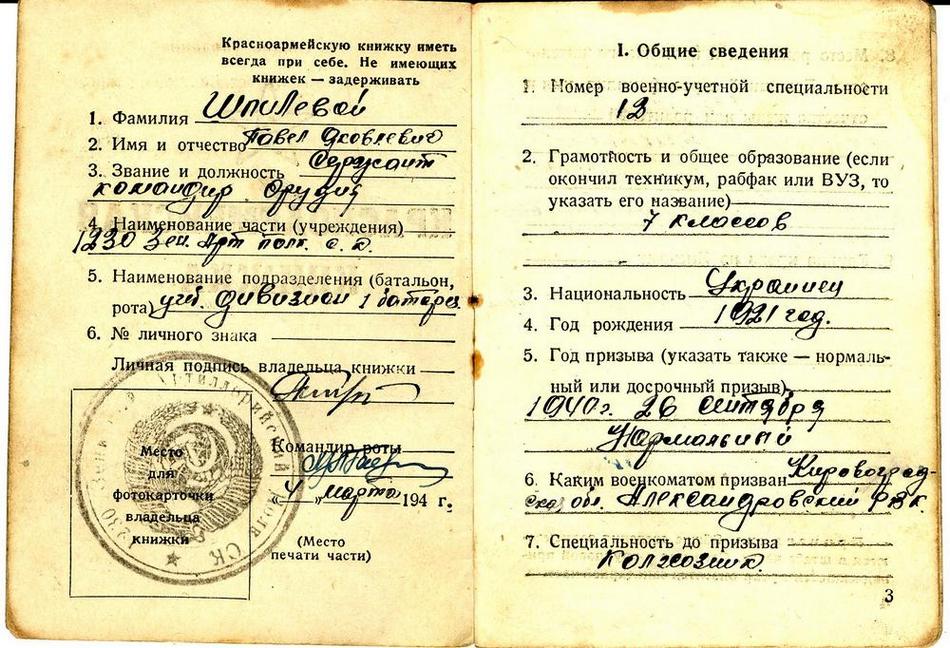 Красноармейскую книжку иметь
всегда при себе. Не имеющих
книжек — задерживать
1. Фамилия Шпилевой
2. Имя и отчество Павел Яковлевич
3. Звание и должность Сержант
командир орудия
4. Наименование части (учреждения)
1230 Зен. Арт полк. с. д.
5. Наименование подразделения (батальон,
рота) уч. дивизион 1 батарея
6. № личного знака
Личная подпись владельца книжки
Командир роты
"4" марта 194 г.
Место
для
фотокарточки
владельца
книжки
(Место
печати части)
I. Общие сведения
1. Номер военно-учетной специальности
13
2. Грамотность и общее образование (если
окончил техникум, рабфак или ВУЗ, то
указать его название)
7 классов
3. Национальность Украинец
4. Год рождения 1921 год.
5. Год призыва (указать также — нормаль-
ный или досрочный призыв)
1940 г. 26 сентября
Нормальный
6. Каким военкоматом призван Кировоград-
ской обл. Александровский РВК.
7. Специальность до призыва
колхозник.
3